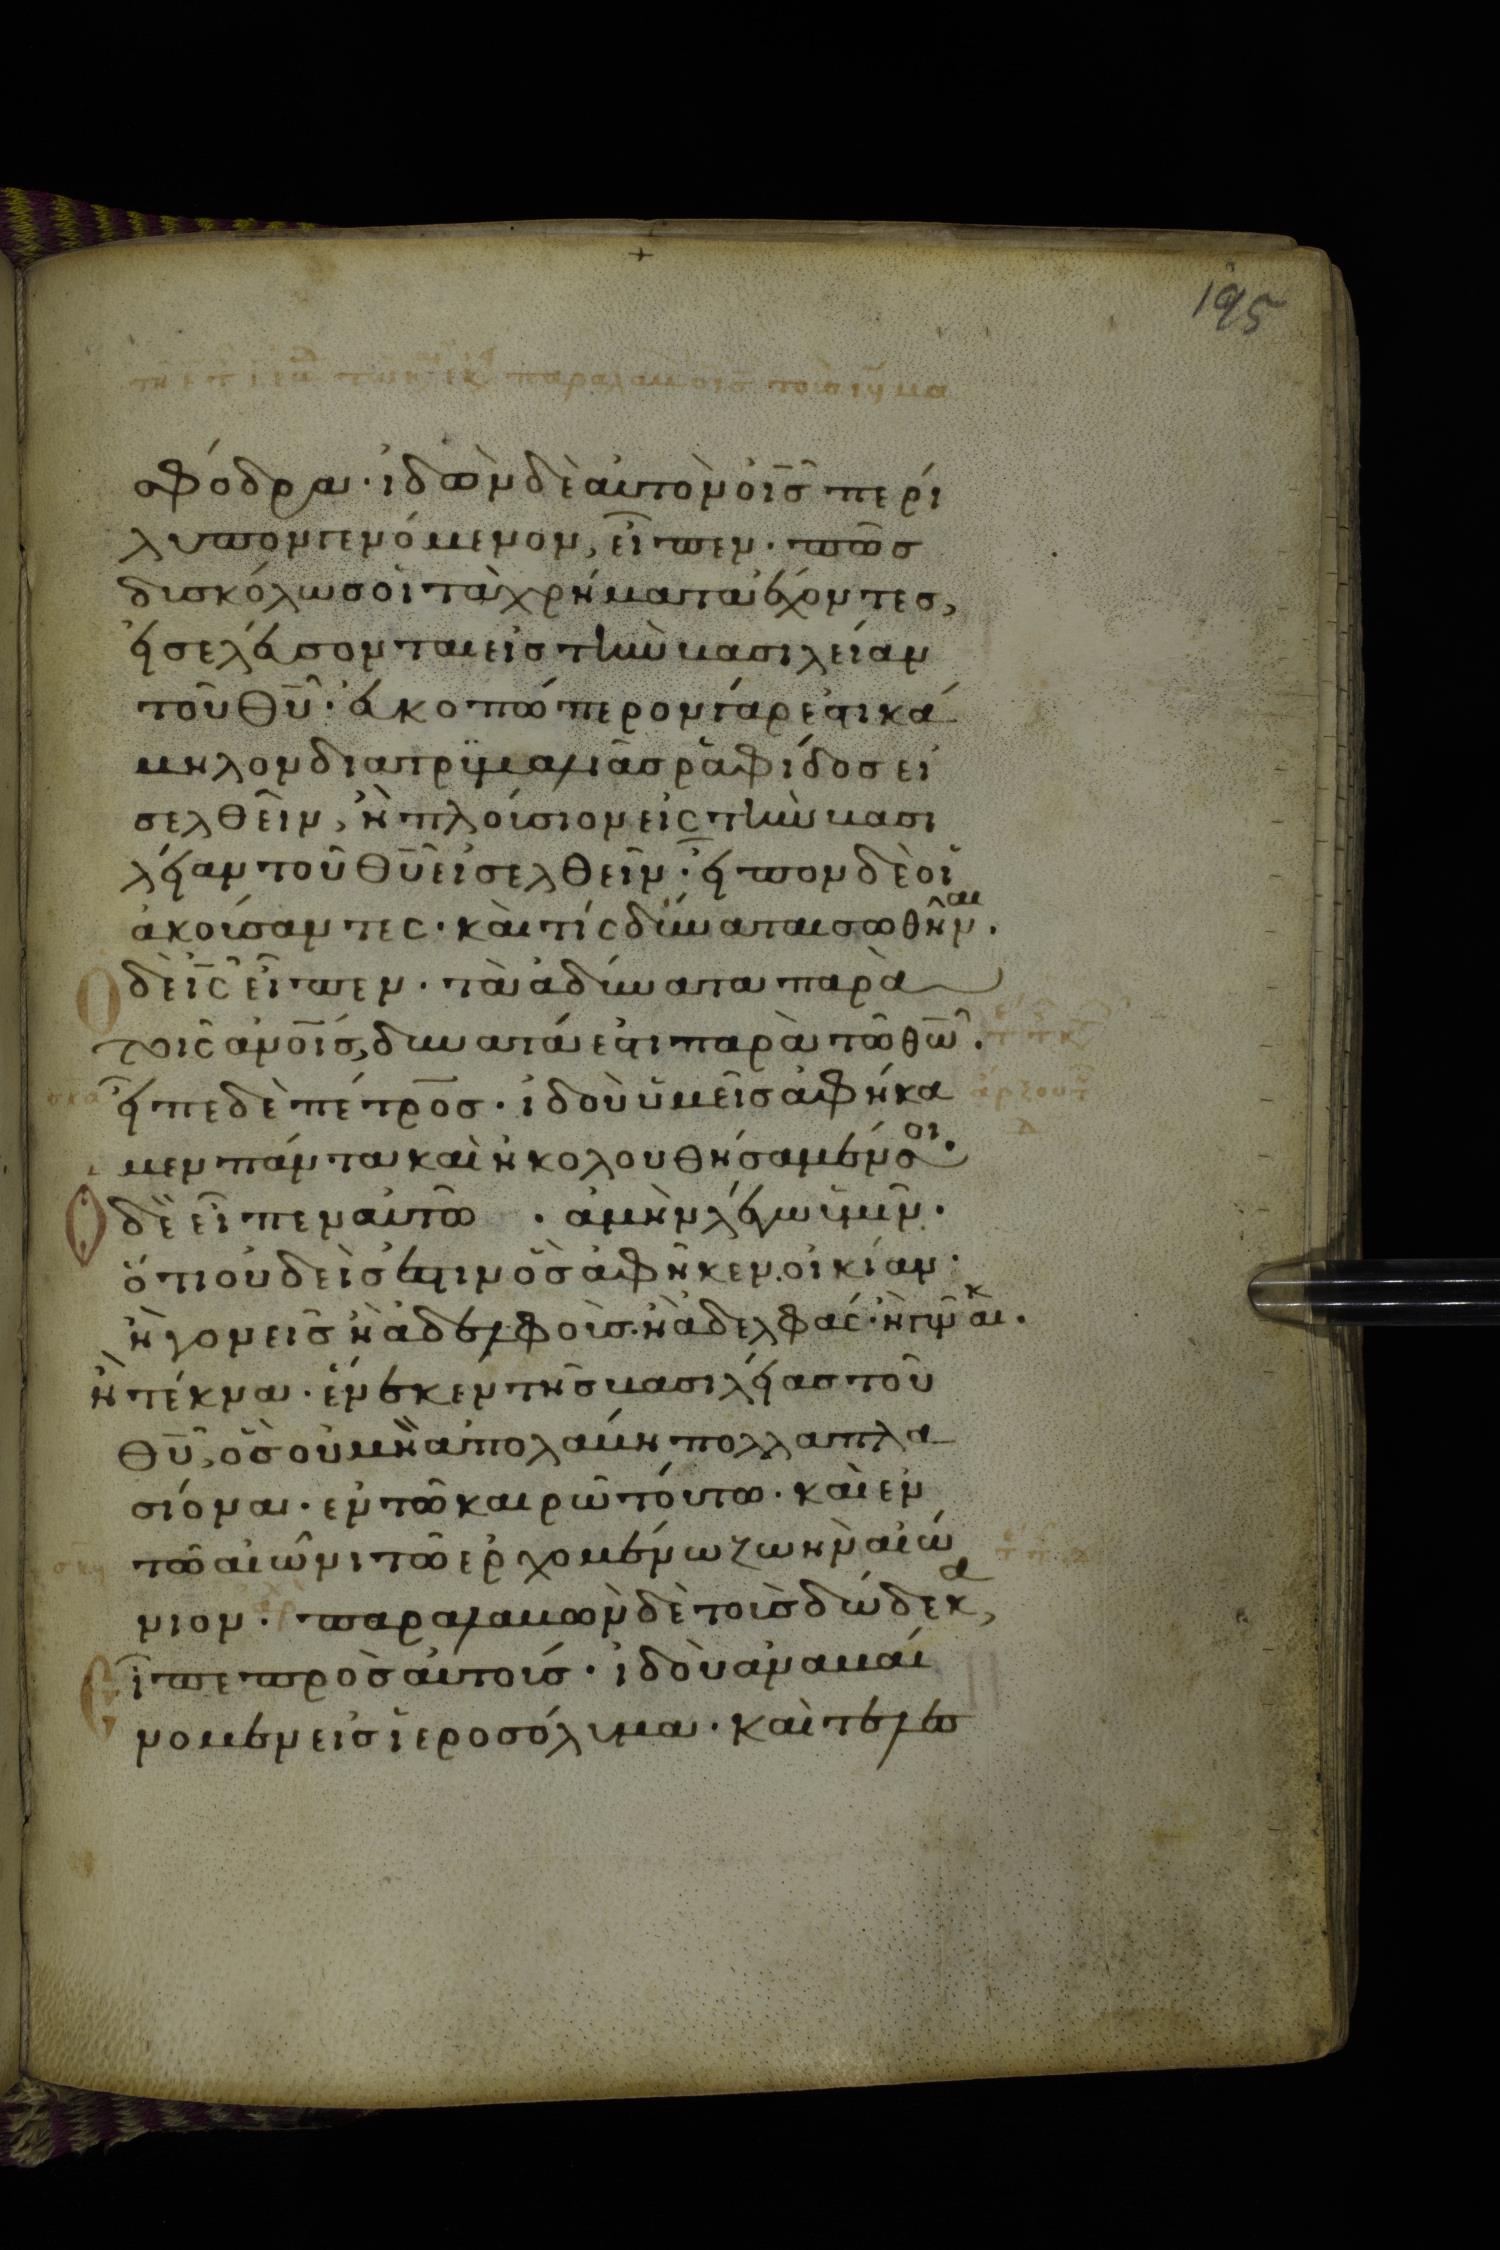 195
σφόδρα· ἰδὼν δὲ αὐτὸν ὁ ις̅ περί
λυπον γενόμενον, εἶπεν· πῶς
δυσκόλως οἱ τὰ χρήματα ἔχοντες,
εἰσελεύσονται εἰς τὴν βασιλείαν
τοῦ θυ̅· εὐκοπώτερον γάρ ἐστι κά
μηλον διὰ τρυμαλιᾶς ῥαφίδος εἰ
σελθεῖν, ἢ πλούσιον εἰς τὴν βασι
λείαν τοῦ θυ̅ εἰσελθεῖν· εἶπον δὲ οἱ
ἀκούσαντες· καὶ τίς δύναται σωθῆναι.
Ο δὲ ις̅ εἶπεν· τὰ ἀδύνατα παρὰ
τοῖς ανοις̅, δυνατά ἐστι παρὰ τῶ θω̅.
εἶπε δὲ πέτρος· ἰδοὺ ὑμεῖς ἀφήκα
μεν πάντα καὶ ἠκολουθήσαμέν σοι.
Ο δὲ εἶπεν αὐτῶ · ἀμὴν λέγω ὑμῖν·
ὅτι οὐδείς ἐστιν ὃς ἀφῆκεν οἰκίαν·
ἢ γονεῖς ἢ ἀδελφοὺς· ἢ ἀδελφάς· ἢ γυναῖκα.
ἢ τέκνα· ἕνεκεν τῆς βασιλείας τοῦ
θυ̅, ὃς οὐ μὴ ἀπολάβη πολλαπλα
σίονα· ἐν τῶ καιρῶ τούτω· καὶ ἐν
τῶ αἰῶνι τῶ ἐρχομένω ζωὴν αἰώ
νιον· παραλαβὼν δὲ τοὺς δώδεκα,
Εἶπε πρὸς αὐτούς· ἰδοὺ ἀναβαί
νομεν εἰς ἱεροσόλυμα· καὶ τελε